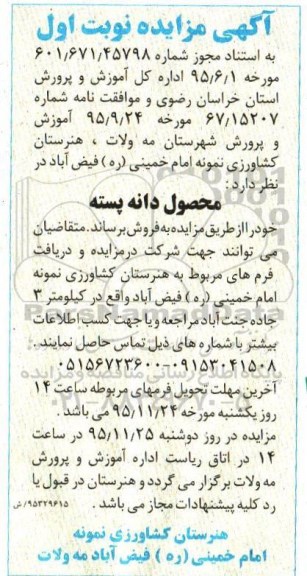 آگهی مزایده نوبت اول
به استناد مجوز شماره ۶۰۱٫۶۷۱٫۴۵۷۹۸
مورخه ۹۵٫۶٫۱ اداره کل آموزش و پرورش
استان خراسان رضوی و موافقت نامه شماره
۶۷٫۱۵۲۰۷ مورخه ۹۵٫۹٫۲۴ آموزش
و پرورش شهرستان مه ولات ، هنرستان
کشاورزی نمونه امام خمینی (ره) فیض آباد در
نظر دارد :
محصول دانه پسته
خود را از طریق مزایده به فروش برساند. متقاضیان
می توانند جهت شرکت در مزایده و دریافت
فرم های مربوط به هنرستان کشاورزی نمونه
امام خمینی (ره) فیض آباد واقع در کیلومتر ۳
جاده جنت آباد مراجعه و یا جهت کسب اطلاعات
بیشتر با شماره های ذیل تماس حاصل نمایند .
۰۹۱۵۳۰۴۱۵۰۸-۰۵۱۵۶۷۲۳۶۰۰
آخرین مهلت تحویل فرمهای مربوطه ساعت ۱۴
روز یکشنبه مورخه ۹۵٫۱۱٫۲۴ می باشد .
مزایده در روز دوشنبه ۹۵٫۱۱٫۲۵ در ساعت
۱۴ در اتاق ریاست اداره آموزش و پرورش
مه ولات برگزار می گردد و هنرستان در قبول یا
رد کلیه پیشنهادات مجاز می باشد .
۹۵۳۲۹۶۱۵/ش
هنرستان کشاورزی نمونه
امام خمینی (ره) فیض آباد مه ولات